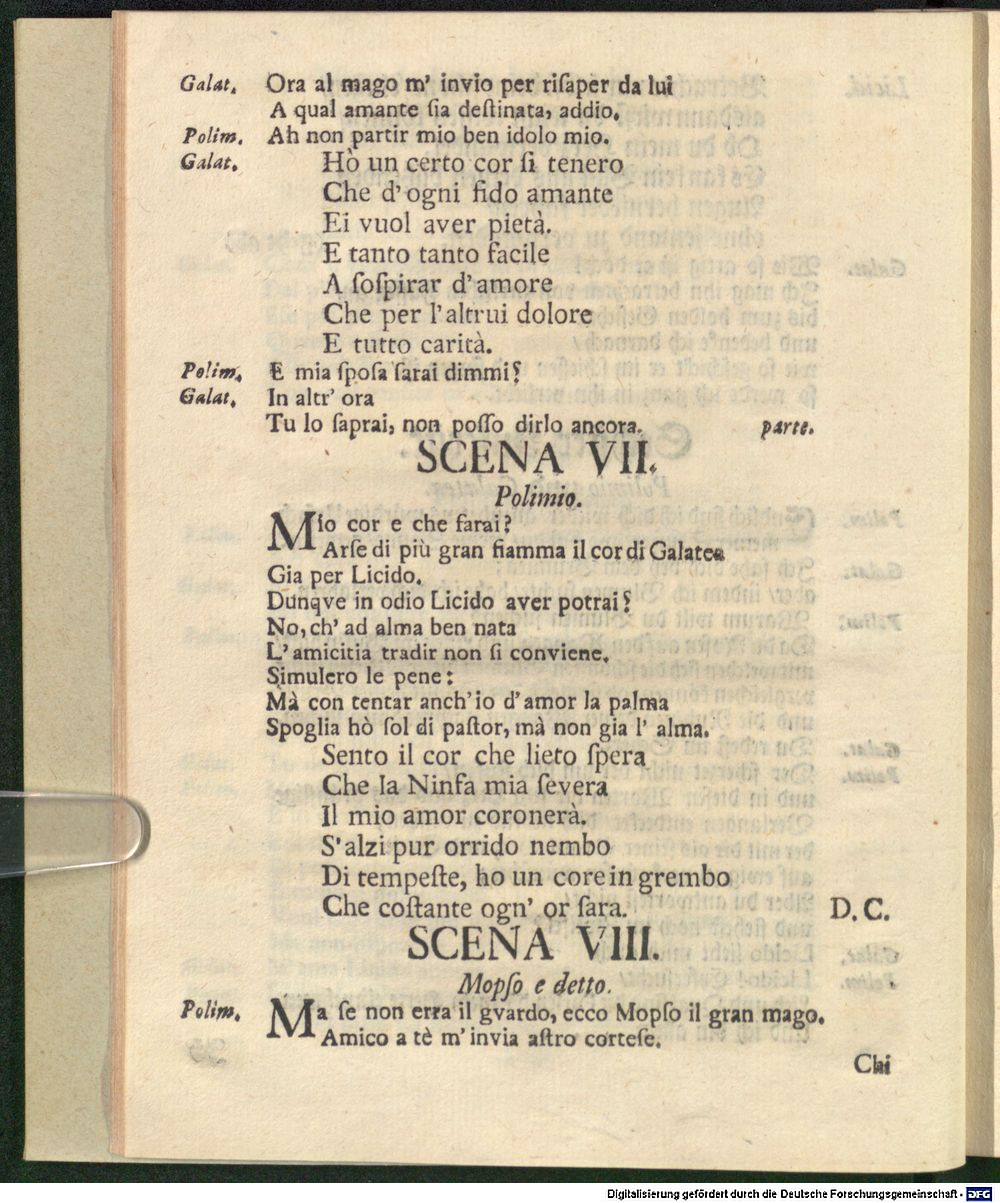 Galat. Ora al mago m' invio per riſaper da lui
A qual amante ſia deſtinata, addio.
Polim. Ah non partir mio ben idolo mio.
Galat. Hò un certo cor ſi tenero
Che d'ogni fido amante
Ei vuol aver pietà.
E tanto tanto facile
A ſoſpirar d'amore
Che per l'altrui dolore
E tutto carità.
Polim. E mia ſpoſa ſarai dimmi?
Galat. In altr' ora
Tu lo ſaprai, non poſſo dirlo ancora. parte.
SCENA VII.
Polimio.
Mio cor e che farai?
Arſe di più gran fiamma il cor di Galatea
Gia per Licido.
Dunqve in odio Licido aver potrai?
No, ch' ad alma ben nata
L'amicitia tradir non ſi conviene.
Simulero le pene:
Mà con tentar anch'io d'amor la palma
Spoglia hò ſol di paſtor, mà non gia l' alma.
Sento il cor che lieto ſpera
Che la Ninfa mia ſevera
Il mio amor coronerà.
S'alzi pur orrido nembo
Di tempeſte, ho un core in grembo
Che coſtante ogn' or ſara. D. C.
SCENA VIII.
Mopſo e detto.
Polim. Ma se non erra il gvardo, ecco Mopſo il gran mago.
Amico a tè m'invia aſtro corteſe.
Chi
Digitalisierung gefördert durch die Deutsche Forschungsgemeinschaft - DFG